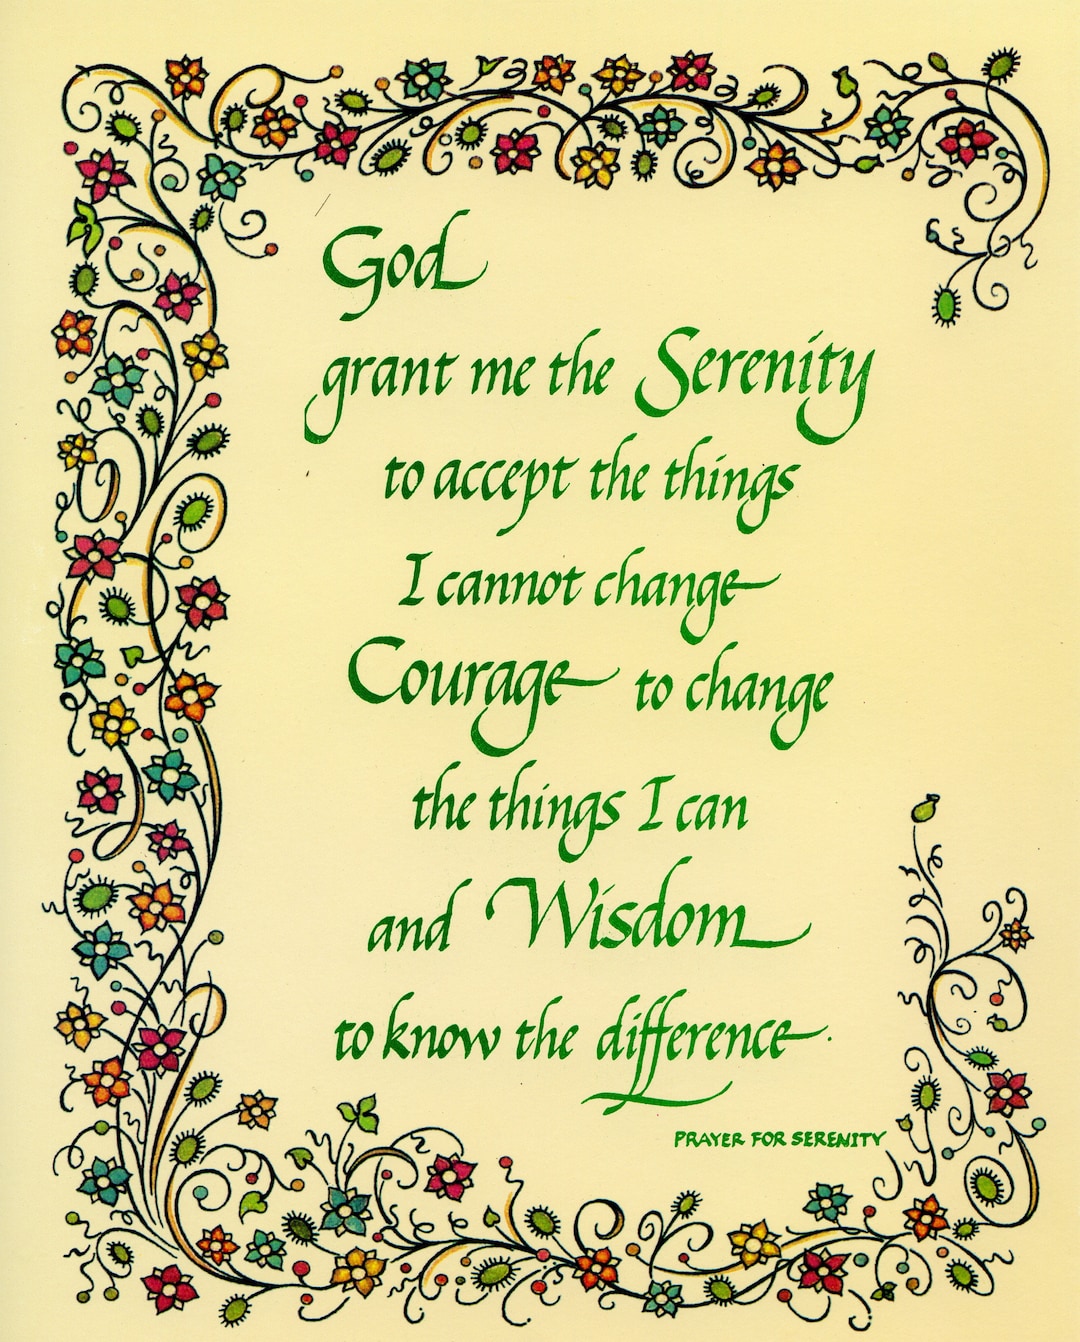 God
grant me the Serenity
to accept the things
I cannot change
Courage to change
the things I can
and Wisdom
to know the difference.
PRAYER FOR SERENITY